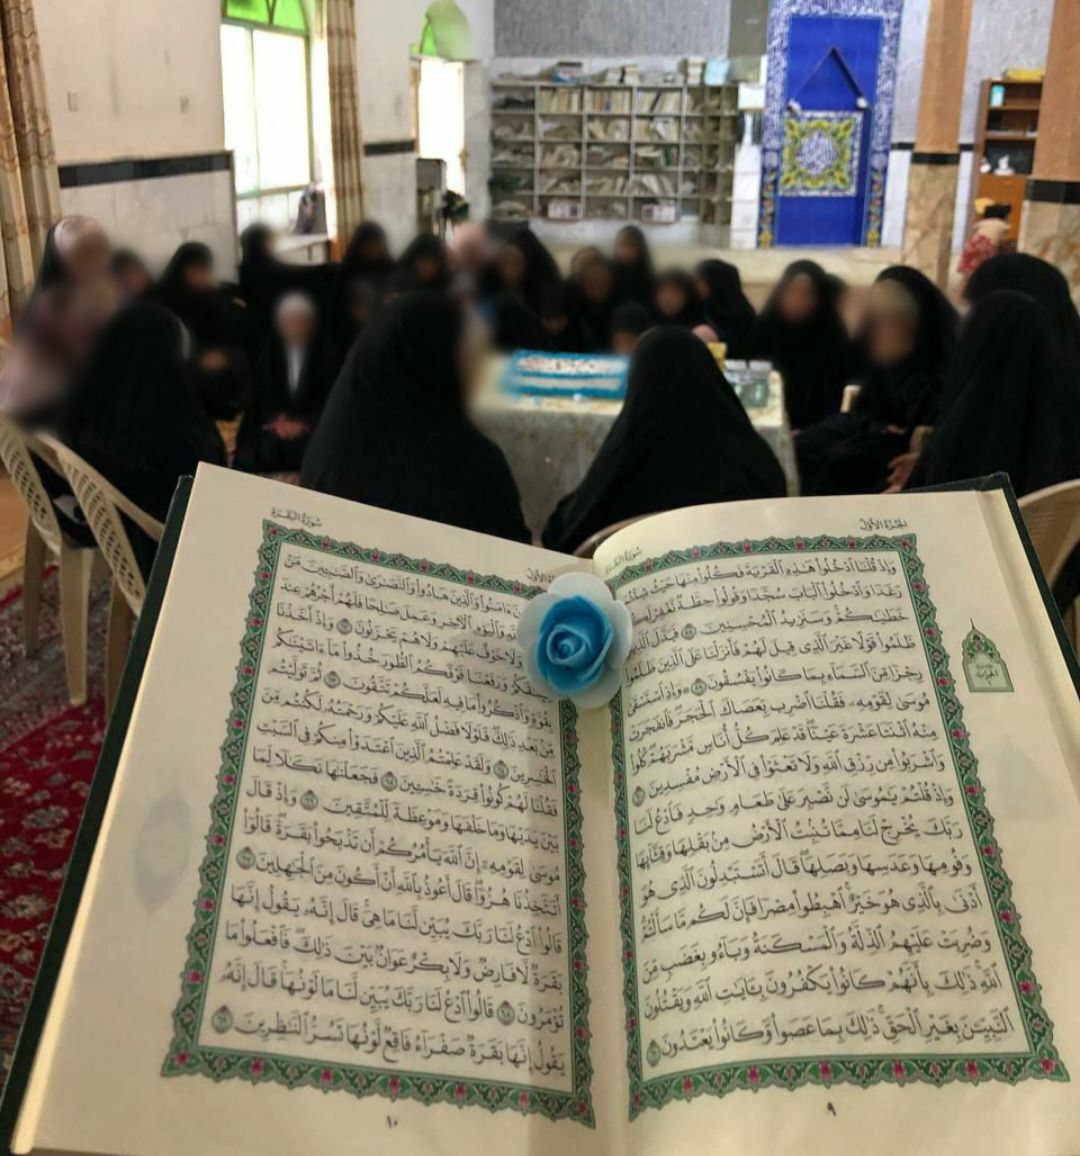 الجُزْءُ الأَوَّلُ
سُورَةُ البَقَرَةِ
وَإِذْ قُلْنَا ٱدْخُلُوا۟ هَٰذِهِ ٱلْقَرْيَةَ فَكُلُوا۟ مِنْهَا حَيْثُ شِئْتُمْ
رَغَدًا وَٱدْخُلُوا۟ ٱلْبَابَ سُجَّدًا وَقُولُوا۟ حِطَّةٌ نَّغْفِرْ لَكُمْ
خَطَٰيَٰكُمْ وَسَنَزِيدُ ٱلْمُحْسِنِينَ ٥٨ فَبَدَّلَ ٱلَّذِينَ
ظَلَمُوا۟ قَوْلًا غَيْرَ ٱلَّذِى قِيلَ لَهُمْ فَأَنزَلْنَا عَلَى ٱلَّذِينَ ظَلَمُوا۟
رِجْزًا مِّنَ ٱلسَّمَآءِ بِمَا كَانُوا۟ يَفْسُقُونَ ٥٩ ۞ وَإِذِ ٱسْتَسْقَىٰ
مُوسَىٰ لِقَوْمِهِۦ فَقُلْنَا ٱضْرِب بِّعَصَاكَ ٱلْحَجَرَ فَٱنفَجَرَتْ
مِنْهُ ٱثْنَتَا عَشْرَةَ عَيْنًا قَدْ عَلِمَ كُلُّ أُنَاسٍ مَّشْرَبَهُمْ كُلُوا۟
وَٱشْرَبُوا۟ مِن رِّزْقِ ٱللَّهِ وَلَا تَعْثَوْا۟ فِى ٱلْأَرْضِ مُفْسِدِينَ ٦٠
وَإِذْ قُلْتُمْ يَٰمُوسَىٰ لَن نَّصْبِرَ عَلَىٰ طَعَامٍ وَٰحِدٍ فَٱدْعُ لَنَا
رَبَّكَ يُخْرِجْ لَنَا مِمَّا تُنۢبِتُ ٱلْأَرْضُ مِنۢ بَقْلِهَا وَقِثَّآئِهَا
وَفُومِهَا وَعَدَسِهَا وَبَصَلِهَا قَالَ أَتَسْتَبْدِلُونَ ٱلَّذِى هُوَ
أَدْنَىٰ بِٱلَّذِى هُوَ خَيْرٌ ٱهْبِطُوا۟ مِصْرًا فَإِنَّ لَكُم مَّا سَأَلْتُمْ
وَضُرِبَتْ عَلَيْهِمُ ٱلذِّلَّةُ وَٱلْمَسْكَنَةُ وَبَآءُو بِغَضَبٍ مِّنَ
ٱللَّهِ ذَٰلِكَ بِأَنَّهُمْ كَانُوا۟ يَكْفُرُونَ بِـَٔايَٰتِ ٱللَّهِ وَيَقْتُلُونَ
ٱلنَّبِيِّـۧنَ بِغَيْرِ ٱلْحَقِّ ذَٰلِكَ بِمَا عَصَوا۟ وَّكَانُوا۟ يَعْتَدُونَ ٦١
٩
سُورَةُ البَقَرَةِ
ءَامَنُوا۟ وَٱلَّذِينَ هَادُوا۟ وَٱلنَّصَٰرَىٰ وَٱلصَّٰبِـِٔينَ مَنْ
وَٱلْيَوْمِ ٱلْءَاخِرِ وَعَمِلَ صَٰلِحًا فَلَهُمْ أَجْرُهُمْ عِندَ
وَلَا خَوْفٌ عَلَيْهِمْ وَلَا هُمْ يَحْزَنُونَ ٦٢ وَإِذْ أَخَذْنَا
وَرَفَعْنَا فَوْقَكُمُ ٱلطُّورَ خُذُوا۟ مَآ ءَاتَيْنَٰكُم
بِقُوَّةٍ وَٱذْكُرُوا۟ مَا فِيهِ لَعَلَّكُمْ تَتَّقُونَ ٦٣ ثُمَّ تَوَلَّيْتُم
مِّنۢ بَعْدِ ذَٰلِكَ فَلَوْلَا فَضْلُ ٱللَّهِ عَلَيْكُمْ وَرَحْمَتُهُۥ لَكُنتُم مِّنَ
ٱلْخَٰسِرِينَ ٦٤ وَلَقَدْ عَلِمْتُمُ ٱلَّذِينَ ٱعْتَدَوْا۟ مِنكُمْ فِى ٱلسَّبْتِ
فَقُلْنَا لَهُمْ كُونُوا۟ قِرَدَةً خَٰسِـِٔينَ ٦٥ فَجَعَلْنَٰهَا نَكَٰلًا لِّمَا
بَيْنَ يَدَيْهَا وَمَا خَلْفَهَا وَمَوْعِظَةً لِّلْمُتَّقِينَ ٦٦ وَإِذْ قَالَ
مُوسَىٰ لِقَوْمِهِۦٓ إِنَّ ٱللَّهَ يَأْمُرُكُمْ أَن تَذْبَحُوا۟ بَقَرَةً قَالُوٓا۟
أَتَتَّخِذُنَا هُزُوًا قَالَ أَعُوذُ بِٱللَّهِ أَنْ أَكُونَ مِنَ ٱلْجَٰهِلِينَ ٦٧
قَالُوا۟ ٱدْعُ لَنَا رَبَّكَ يُبَيِّن لَّنَا مَا هِىَ قَالَ إِنَّهُۥ يَقُولُ إِنَّهَا
بَقَرَةٌ لَّا فَارِضٌ وَلَا بِكْرٌ عَوَانٌۢ بَيْنَ ذَٰلِكَ فَٱفْعَلُوا۟ مَا
تُؤْمَرُونَ ٦٨ قَالُوا۟ ٱدْعُ لَنَا رَبَّكَ يُبَيِّن لَّنَا مَا لَوْنُهَا قَالَ إِنَّهُۥ
يَقُولُ إِنَّهَا بَقَرَةٌ صَفْرَآءُ فَاقِعٌ لَّوْنُهَا تَسُرُّ ٱلنَّٰظِرِينَ ٦٩
١٠